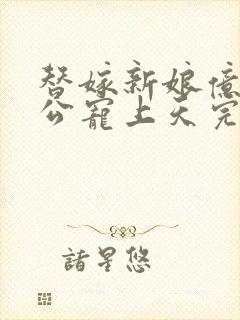 替嫁新娘億
公寵上天完
諸星悠